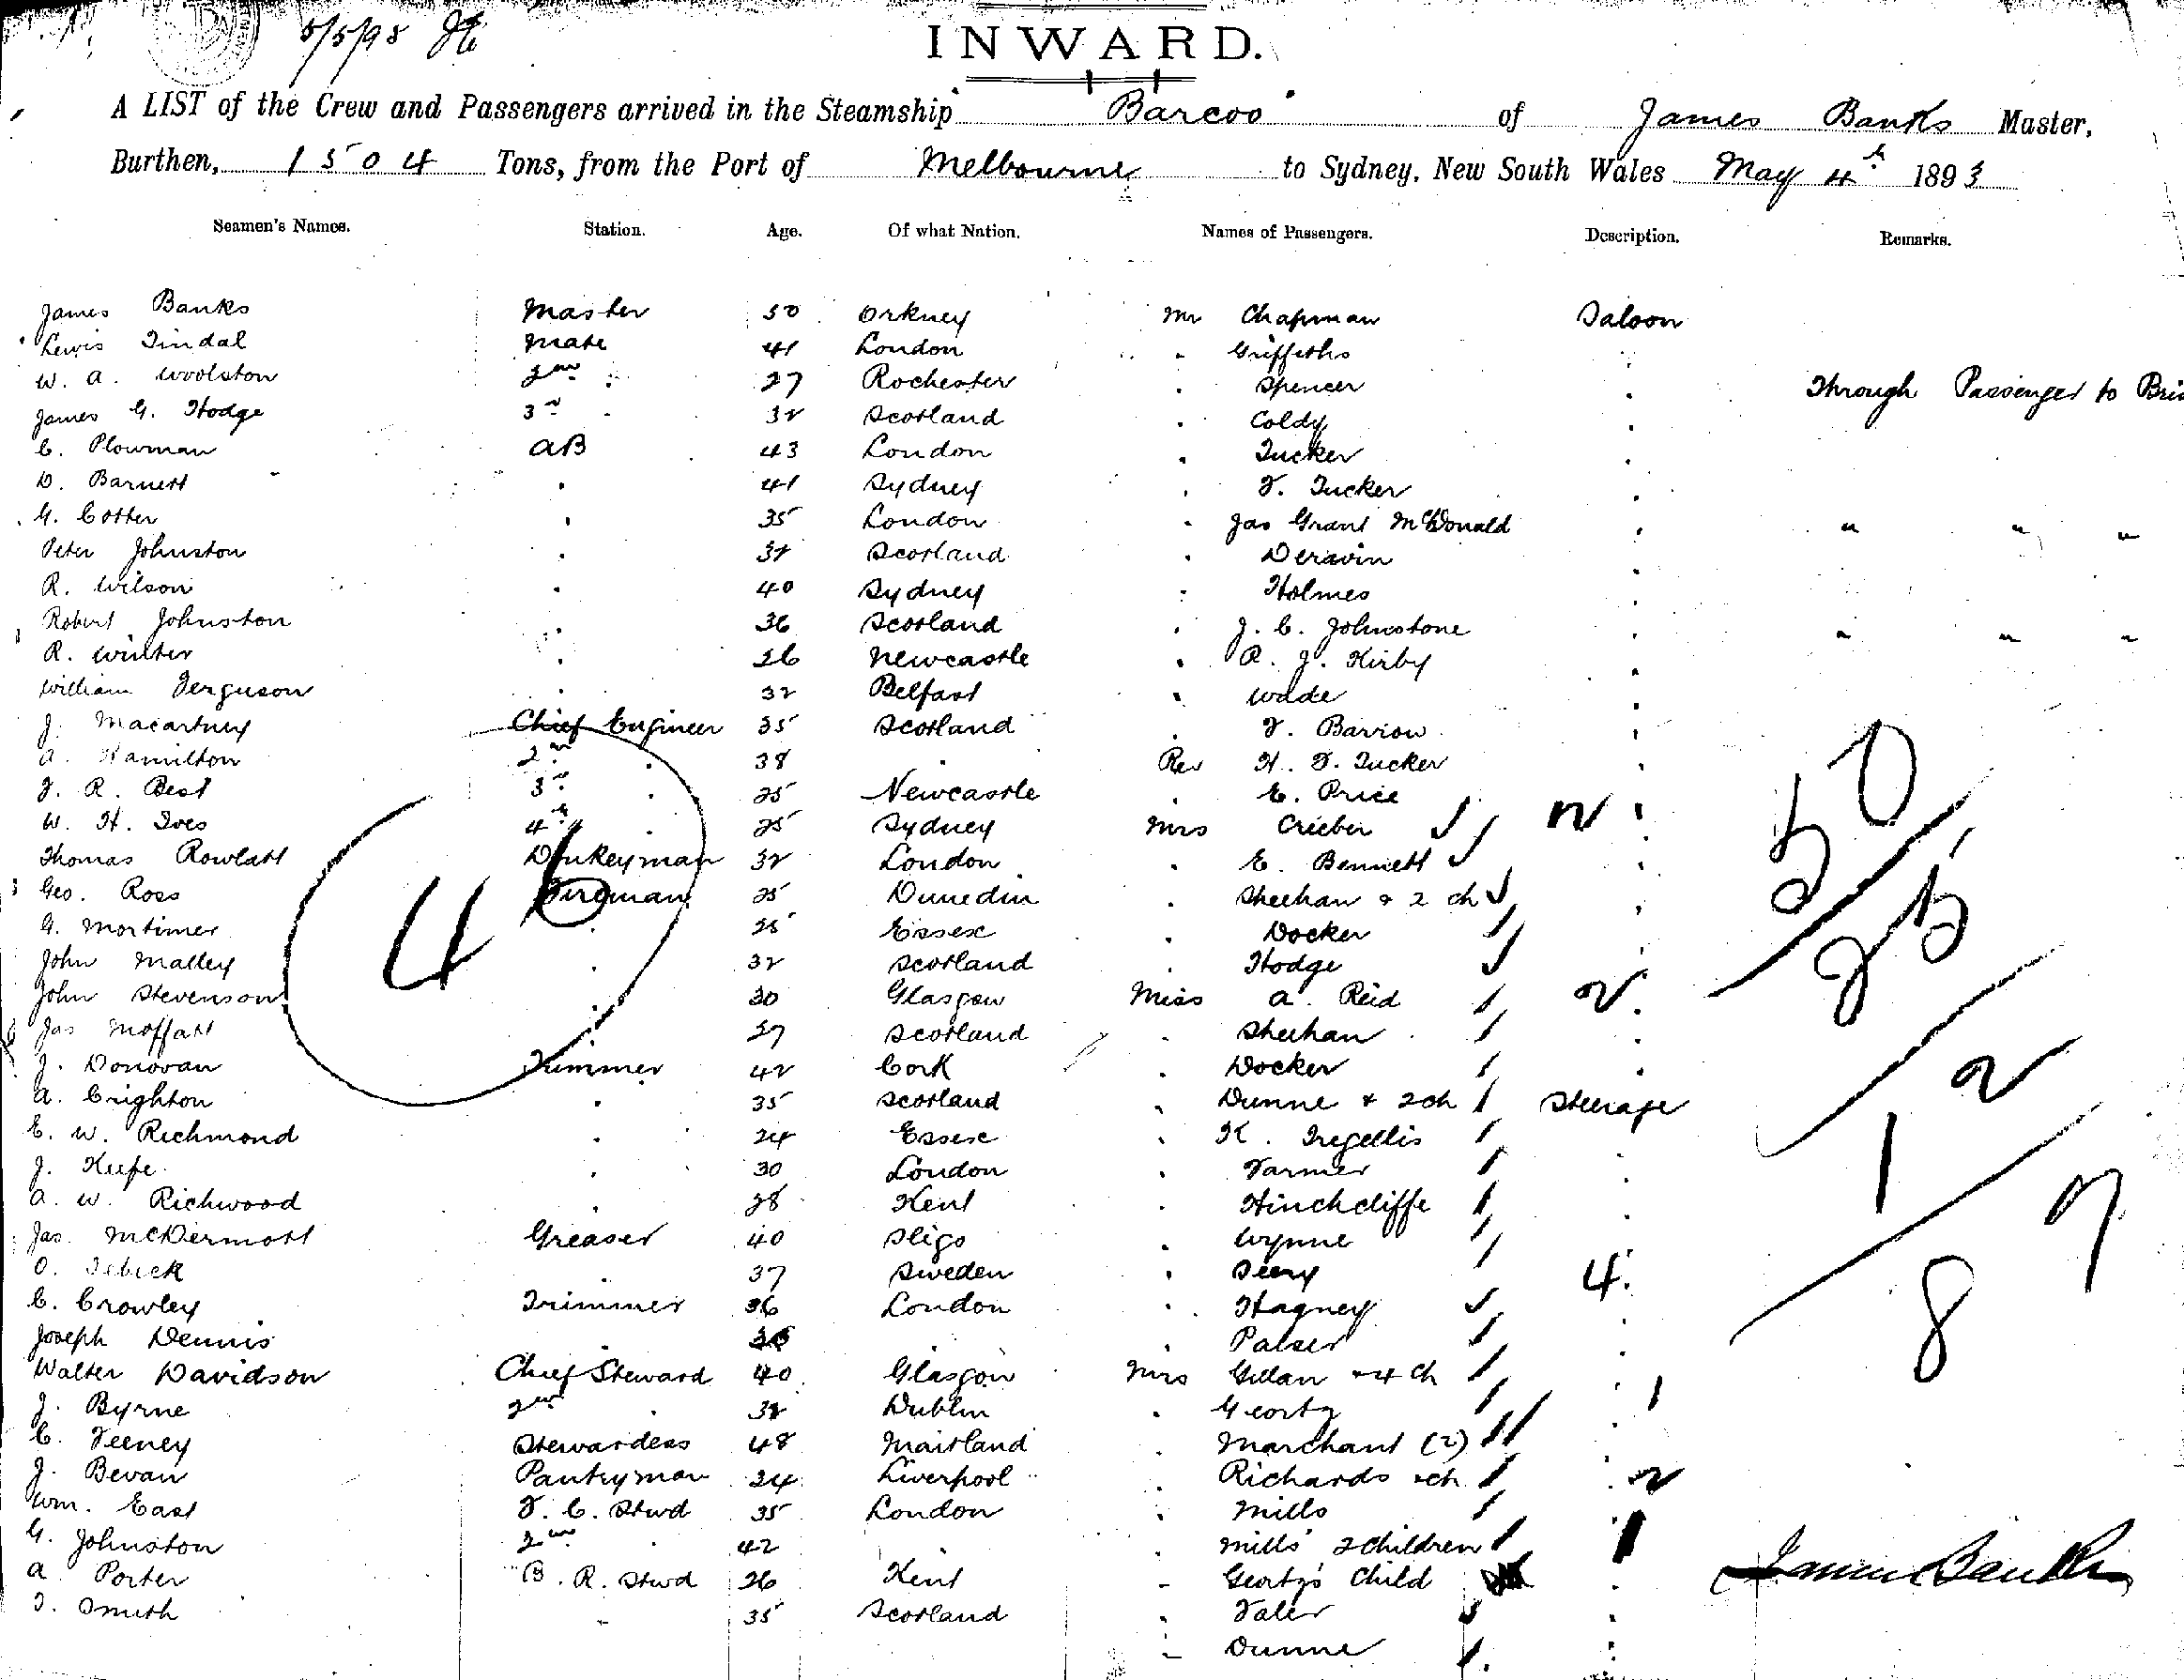 5/5/93
INWARD.
A LIST of the Crew and Passengers arrived in the Steamship "Barcoo" of James Banks Master,
Burthen, 1504 Tons, from the Port of Melbourne to Sydney, New South Wales May 4th 1893
Seamen's Names. Station. Age. Of what Nation. Names of Passengers. Description. Remarks.
James Banks Master 50 Orkney Mr Chapman Saloon
Lewis Tindal Mate 41 London " Griffiths "
W. A. Woolston 2nd " 27 Rochester " Spencer " Through Passenger to
James G. Hodge 3rd " 32 Scotland " Coldy "
C. Plowman AB 43 London " Tucker "
D. Barnett " 41 Sydney " F. Tucker "
G. Cotter " 35 London " Jas Grant McDonald " " " "
Peter Johnston " 37 Scotland " Deravin "
R. Wilson " 40 Sydney " Holmes "
Robert Johnston " 36 Scotland " J. C. Johnstone " " " "
R. Winter " 26 Newcastle " R. J. Kirby "
William Ferguson " 32 Belfast " Wade "
J. Macartney Chief Engineer 35 Scotland " F. Barrow "
A. Hamilton 2nd " 38 " Rev H. F. Tucker "
J. R. Best 3rd " 25 Newcastle " E. Price "
W. H. Ives 4th " 25 Sydney Mrs Crieber "
Thomas Rowlatt Donkeyman 32 London " E. Bennett "
Geo. Ross Fireman 25 Dunedin " Sheehan & 2 ch "
G. Mortimer " 25 Essex " Docker "
John Malley " 32 Scotland " Hodge "
John Stevenson " 30 Glasgow Miss A. Reid "
Jas Moffatt " 27 Scotland " Sheehan "
J. Donovan Trimmer 42 Cork " Docker "
A. Crighton " 35 Scotland " Dunne & 2 ch Steerage
E. W. Richmond " 24 Essex " K. Tregellis "
J. Keefe " 30 London " Farmer "
A. W. Richwood " 28 Kent " Hinchcliffe "
Jas. McDermott Greaser 40 Sligo " Wynne "
O. " 37 Sweden " "
C. Crowley Trimmer 36 London " Hagney "
Joseph Dennis " " " Palser "
Walter Davidson Chief Steward 40 Glasgow Mrs Gillan & 4 ch "
J. Byrne 2nd " 32 Dublin " Geortz "
C. Feeney Stewardess 48 Maitland " Marchant (2) "
J. Bevan Pantryman 24 Liverpool " Richards & ch "
Wm. East F. C. Stwd 35 London " Mills "
G. Johnston 2nd " 42 " " Mills' 2 children "
A. Porter B. R. Stwd 26 Kent " Geortz's Child "
T. Smith " 35 Scotland " Faler "
" Dunne "
46
50
25
12
87
James Banks